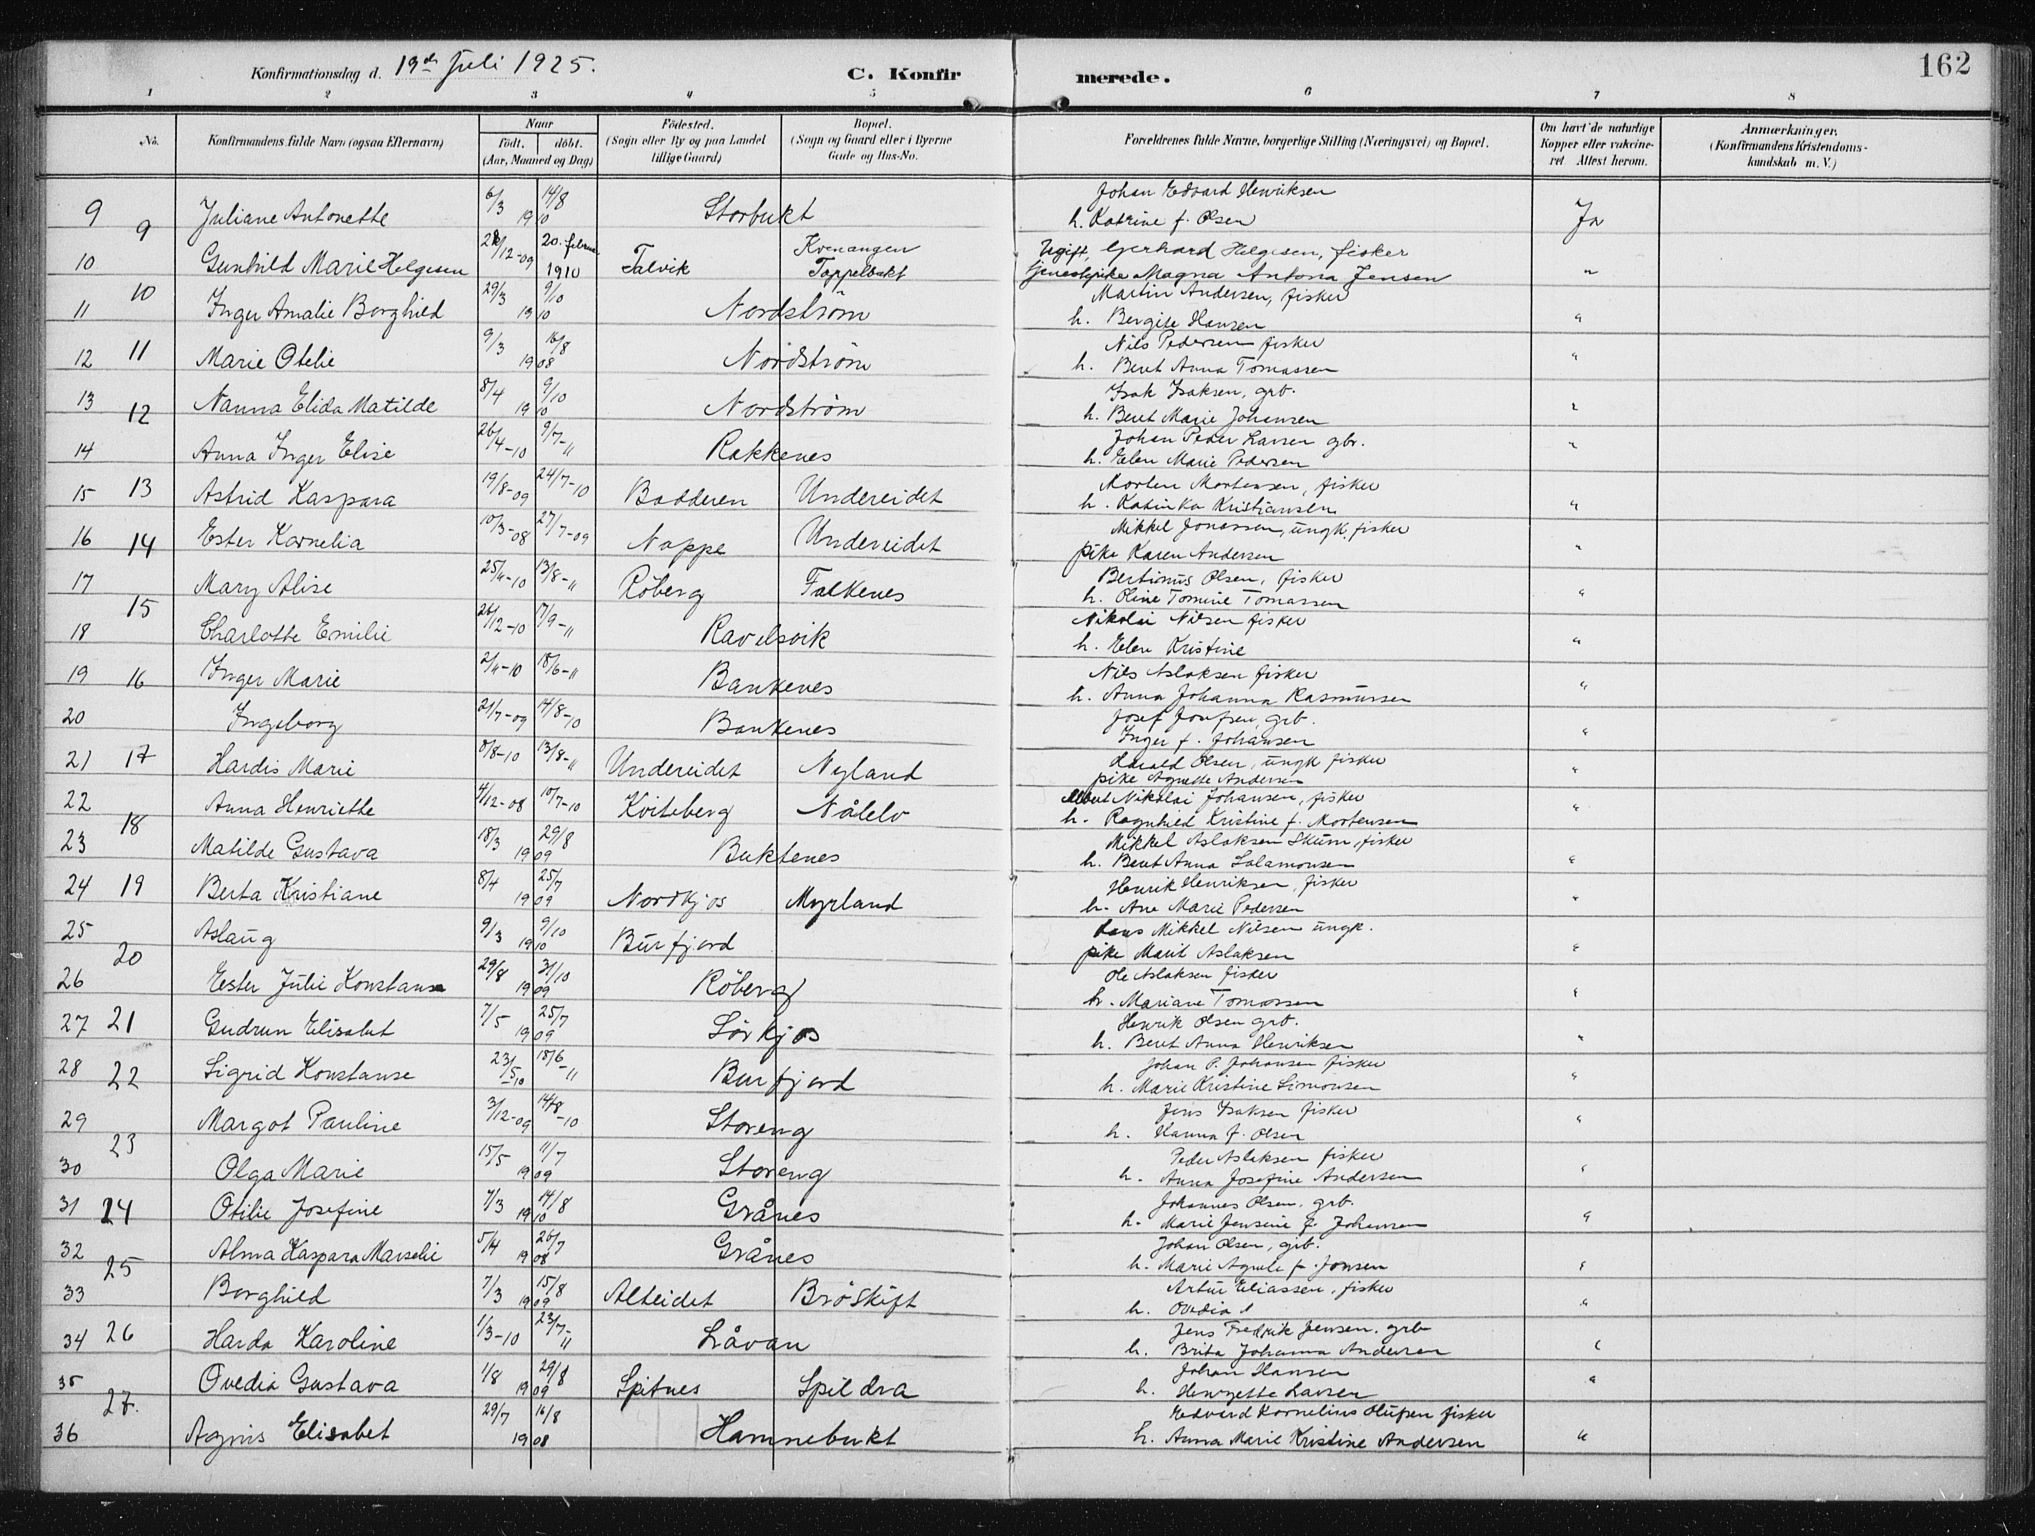 162
Konfirmationsdag d. 19de Juli 1925.
C. Konfirmerede.
1 2 3 4 5 6 7 8
No.
Konfirmandens fulde Navn (ogsaa Efternavn)
Naar
födt. döbt.
(Aar, Maaned og Dag)
Födested.
(Sogn eller By og paa Landet
tillige Gaard)
Bopæl.
(Sogn og Gaard eller i Byerne
Gade og Hus-No.
Forældrenes fulde Navne, borgerlige Stilling (Næringsvei) og Bopæl.
Om havt de naturlige
Kopper eller vakcine-
ret Attest herom.
Anmærkninger.
(Konfirmandens Kristendoms-
kundskab m. V.)
9 9 Juliane Antonette 6/3 14/8 1910 Storbukt Johan Edvard Henriksen
h. Katrine f. Olsen Ja
10 Gunhild Marie Helgesen 28/12-09 20. februar 1910 Talvik Kvenangen Toppelbukt Ugift, Gerhard Helgesen, fisker
tjenestepike Magna Antona Jensen "
11 10 Inger Amalie Borghild 29/3 9/10 1910 Nordstrøm Martin Andersen, fisker
h. Bergite Hansen "
12 11 Marie Otelie 9/3 16/8 1908 Nordstrøm Nils Pedersen fisker
h. Berit Anna Tomassen "
13 12 Nanna Elida Matilde 8/4 9/10 1910 Nordstrøm Isak Isaksen, grb.
h. Berit Marie Johansen "
14 Anna Inger Elise 26/4-10 9/7-" Rakkenes Johan Peder Larsen gbr.
h. Elen Marie Pedersen "
15 13 Astrid Kaspara 19/8-09 24/7-10 Badderen Undereidet Morten Mortensen, fisker
h. Katinka Kristiansen "
16 14 Ester Kornelia 10/3-08 27/7-09 Noppe Undereidet Mikkel Jonassen, ungk. fisker
pike Karen Andersen "
17 15 Mary Alise 25/4-10 13/8-" Røberg Falkenes Bertinus Olsen, fisker
h. Oline Tomine Tomassen "
18 Charlotte Emilie 26/12-10 17/9-" Ravelsvik Nikolai Nilsen fisker
h. Elen Kristine "
19 16 Inger Marie 2/4-10 18/6-" Bankenes Nils Aslaksen fisker
h. Anna Johanna Rasmussen "
20 Ingeborg 21/7-09 14/8-10 Bankenes Josef Josefsen, grb.
Inger f. Johansen "
21 17 Hardis Marie 8/8-10 13/8-" Undereidet Nyland Harald Olsen, ungk. fisker
pike Agnette Andersen "
22 18 Anna Henriette 4/12-08 10/7-10 Kviteberg Nålelv Albert Nikolai Johansen, fisker
h. Ragnhild Kristine f. Mortensen "
23 Matilde Gustava 18/3 29/8 1909 Buktenes Mikkel Aslaksen Skum, fisker
h. Berit Anna Salamonsen "
24 19 Berta Kristiane 8/4 25/7 1909 Nordkjos Myrland Henrik Henriksen, fisker
h. Ane Marie Pedersen "
25 20 Aslaug 9/3 9/10 1910 Burfjord Hans Mikkel Nilsen ungk.
pike Marit Aslaksen "
26 Ester Julie Konstanse 29/8 31/10 1909 Røberg Ole Aslaksen fisker
h. Mariane Tomassen "
27 21 Gudrun Elisabet 7/5 25/7 1909 Sørkjos Henrik Olsen grb.
h. Berit Anna Henriksen "
28 22 Sigrid Konstanse 23/5-10 18/6-" Burfjord Johan P. Johansen fisker
h. Marie Kristine Simonsen "
29 23 Margot Pauline 3/12-09 14/8-10 Storeng Jens Isaksen fisker
h. Hanna f. Olsen "
30 Olga Marie 15/5 11/7 1909 Storeng Peder Aslaksen fisker
h. Anna Josefine Andersen "
31 24 Otilie Josefine 7/3 14/8 1910 Grånes Johannes Olsen, grb.
h. Marie Jensine f. Johansen "
32 25 Alma Kaspara Marselie 5/4 26/7 1908 Grånes Johan Olsen, grb.
h. Marie Agnete f. Jonsen "
33 Borghild 7/3 15/8 1909 Alteidet Brøskift Artur Eliassen, fisker
h. Ovedia "
34 26 Harda Karoline 1/3-10 23/7-" Låvan Jens Fredrik Jensen, grb
h. Brita Johanna Andersen "
35 27. Ovedia Gustava 1/8 29/8 1909 Spitnes Spildra Johan Hansen
h. Henryette Larsen "
36 Agnes Elisabet 29/7 16/8 1908 Hamnebukt Edvard Kornelius Olufsen fisker
h. Anna Marie Kristine Andersen "